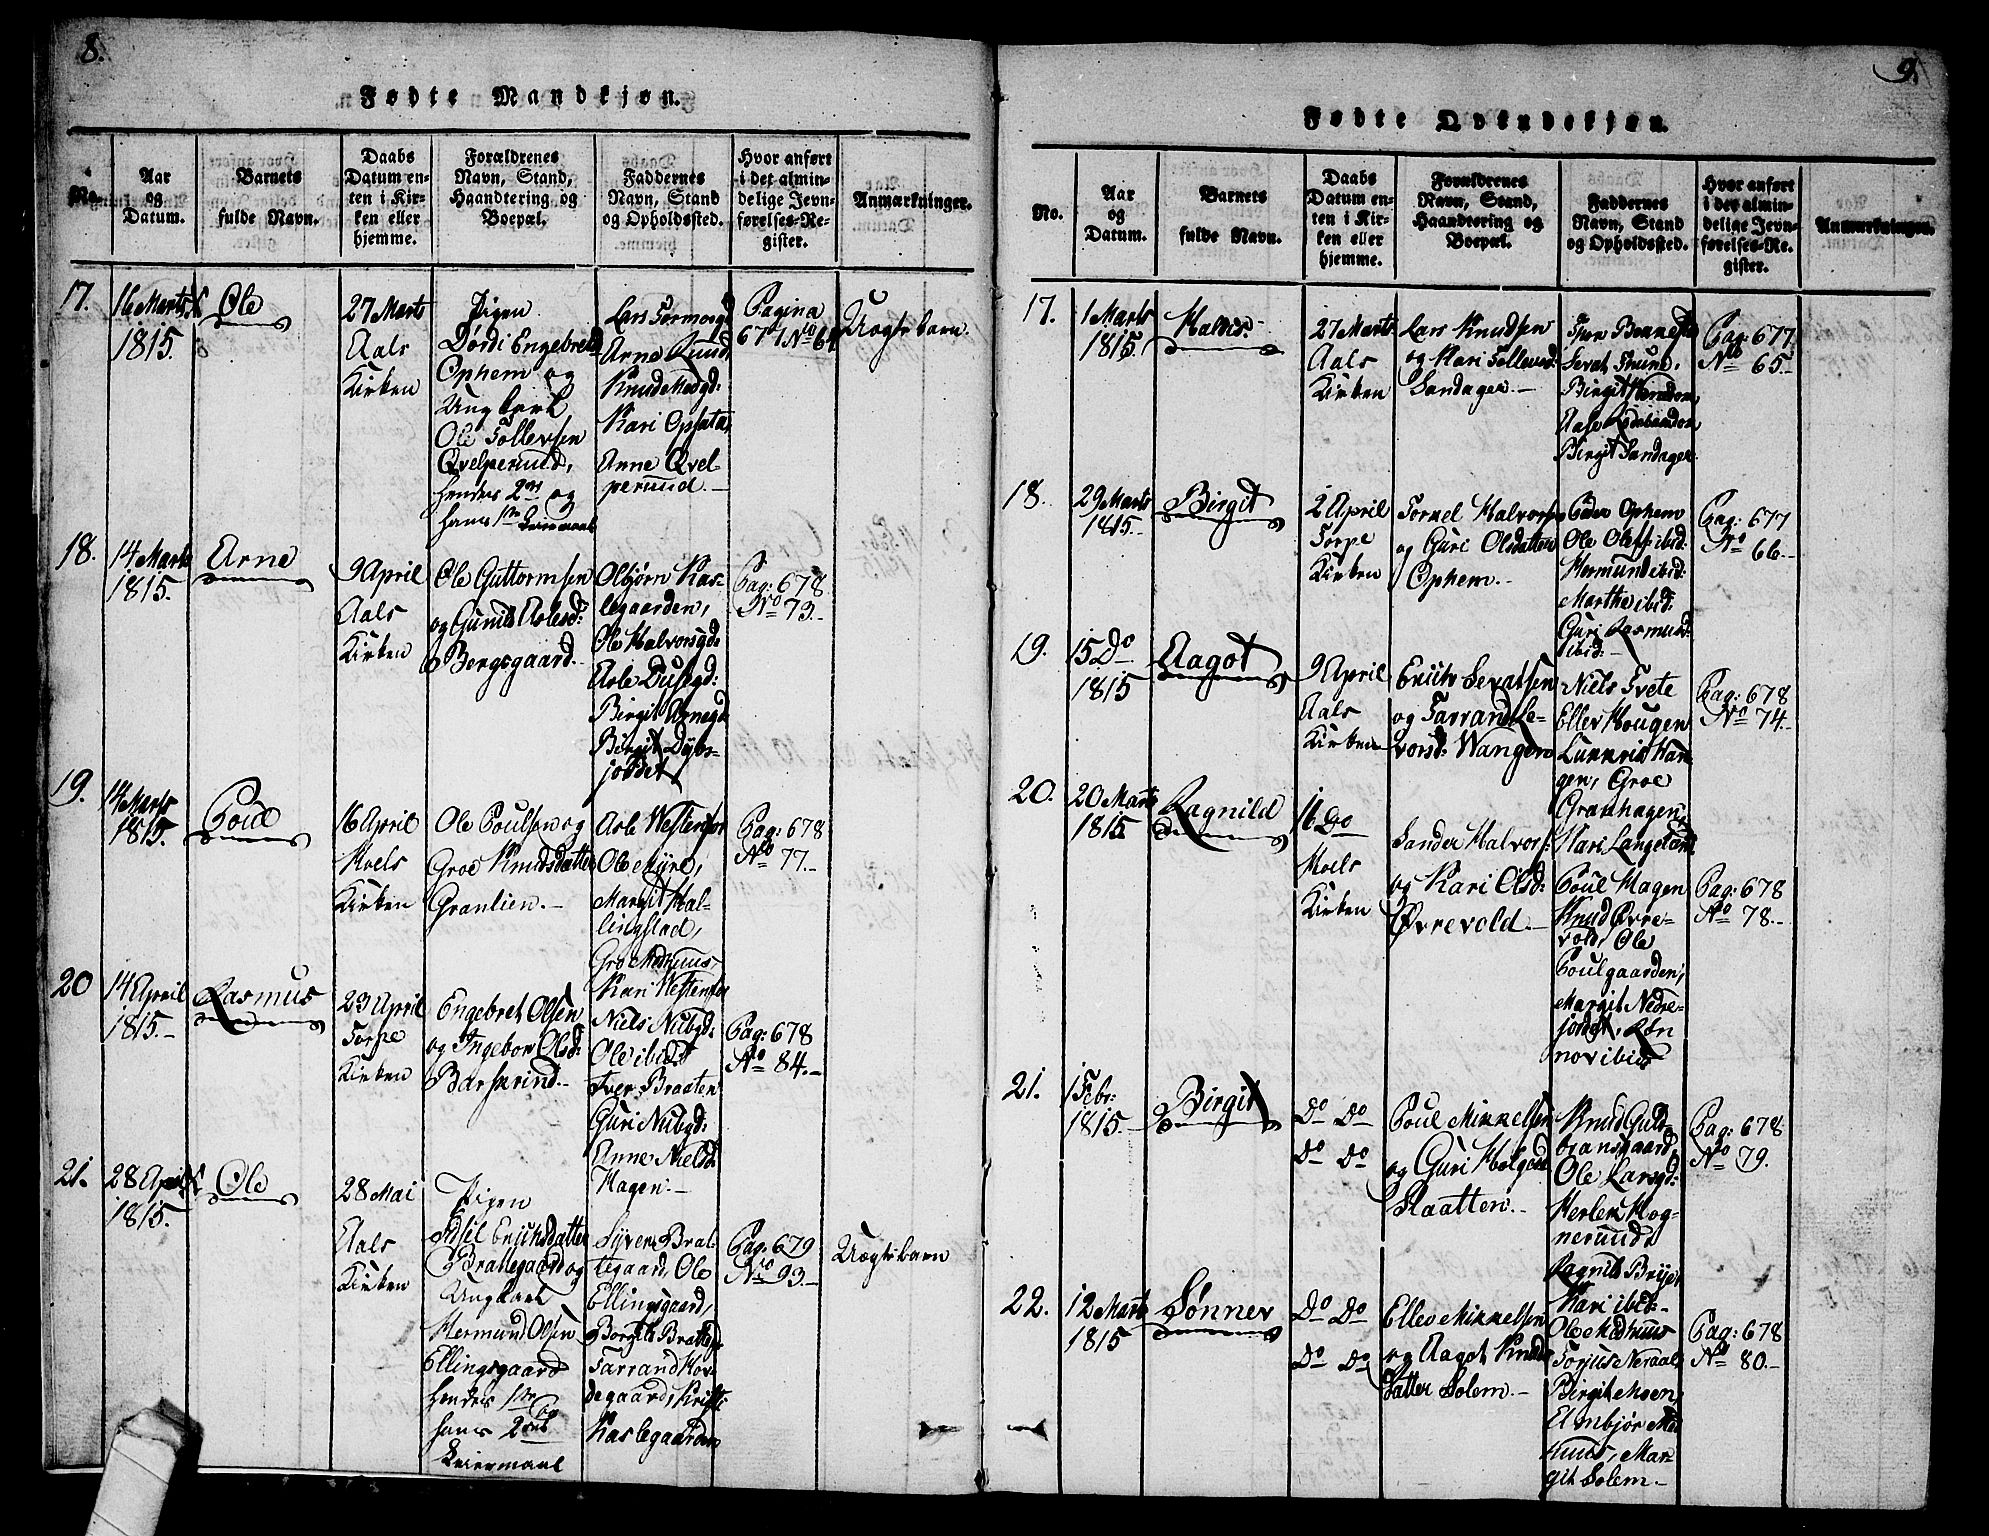 8.
Fødte Mandkjøn.
No.
Aar
og
Datum.
Barnets
fulde Navn.
Daabs
Datum en-
ten i Kir-
ken eller
hjemme.
Forældrenes
Navn, Stand,
Haandtering og
Boepæl.
Faddernes
Navn, Stand
og Opholdssted.
Hvor anført
i det almin-
delige Jevn-
førelses-Re-
gister.
Anmærkninger.
17.
16 Marts
1815.
Ole
27 Marts
Aals
Kirken
Pigen
Dørdi Engebretsd
Ophem og
Ungkarl
Ole Tollevsen
Qvelperuud,
hendes 2det og
hans 1ste Leiermaal
Lars Tormosgd
Arne Ruud,
Knud Medgd:
Kari Opsata,
Anne Qvel
peruud.
Pagina
677 No 64
Uægte barn.
18.
14 Marts
1815.
Arne
9 April
Aals
Kirken
Ole Guttormsen
og Gunild Aslesd:
Borgsgaard.
Olbjørn Kas-
legaarden,
Ole Halvorsgd:
Asle Dusgd:
Birgit Arnegd
Birgit Dybs-
jordet
Pag: 678
No 73.
19.
14 Marts
1815.
Poul
16 April
Hoels
Kirken
Ole Poulsen og
Groe Knudsdatter
Granlien.
Asle Westenfor
Ole Myre,
Margit Hal-
lingstad,
Gro Medhuus,
Kari Westenfor
Pag: 678
No 77.
20
14 April
1815.
Rasmus
23 April
Torpe
Kirken
Engebret Olsen
og Ingebor Olsd:
Barskrind.
Niels Nubgd:
Ole ibid:
Iver Braaten
Guri Nubgd:
Anne Nielsd:
Hagen.
Pag: 678
No 84.
21.
28 April
1815.
Ole
28 Mai
Aals
Kirken
Pigen
Adsil Erichsdatter
Brattegaard og
Ungkarl
Hermund Olsen
Ellingsgaard
hendes 1ste og
hans 2det
Leiermaal
Syver Brat-
tegaard, Ole
Ellingsgaard,
Borgild Brattegd
Tarrand Hov-
degaard, Kristi
Kaslegaarden
Pag: 679
No 93.
Uægte barn
9.
Fødte Qvindekjøn.
No.
Aar
og
Datum.
Barnets
fulde Navn.
Daabs
Datum en-
ten i Kir-
ken eller
hjemme.
Forældrenes
Navn, Stand,
Haandtering og
Boepæl.
Faddernes
Navn, Stand
og Opholdssted.
Hvor anført
i det almin-
delige Jevn-
førelses-Re-
gister.
Anmærkninger.
17.
1 Marts
1815.
Haldis
27 Marts
Aals
Kirken
Lars Knudsen
og Kari Tollevsd:
Sandager.
Sevat Thune,
Birgit
Aase
Birgit Sandager
Pag: 677
No 65.
18.
29 Marts
1815.
Birgit
2 April
Torpe
Kirken
Torkel Halvorsen
og Guri Olsdatter
Ophem.
Peder Ophem
Ole Olsen ibid:
Hermund ibid:
Marthe ibid:
Guri Rasmusd:
ibid:
Pag: 677
No 66.
19.
15 Do
1815
Aagot
9 April
Aals
Kirken
Erich Sevatsen
og Tarrand Le-
vorsd: Wangen
Niels Tvete
Ellev Hougen
Lukkrid Hau-
gen, Groe
Granhagen,
Kari Langeland
Pag: 678
No 74.
20.
20 Marts
1815
Ragnild
16 Do
Hoels
Kirken
Sander Halvors:
og Kari Olsd:
Øvrevold.
Poul Hagen
Knud Øvre-
vold, Ole
Poulgaarden,
Margit Nedre-
jordet, Røn
nov ibid
Pag: 678
No 78.
21.
1 Febr:
1815.
Birgit
Do Do
Do Do
Poul Mikkelsen
og Guri Helgesd
Slaatten.
Knud Guld-
brandsgaard,
Ole Larsgd:
Herlek Hog-
neruud
Ragnild Brye,
Kari ibid.
Pag: 678
No 79.
22.
12 Marts
1815
Sønnev
Do Do
Do Do
Ellev Mikkelsen
og Aagot Knuds
datter Solem.
Ole Medhuus
Torjus Neraal
Birgit Moen,
Elmbjør Med
huus, Mar-
git Solem.
Pag: 678
No 80.